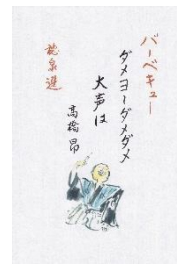 バーベキュー
ダメヨーダメダメ
大声は
高橋 昂
悠泉選